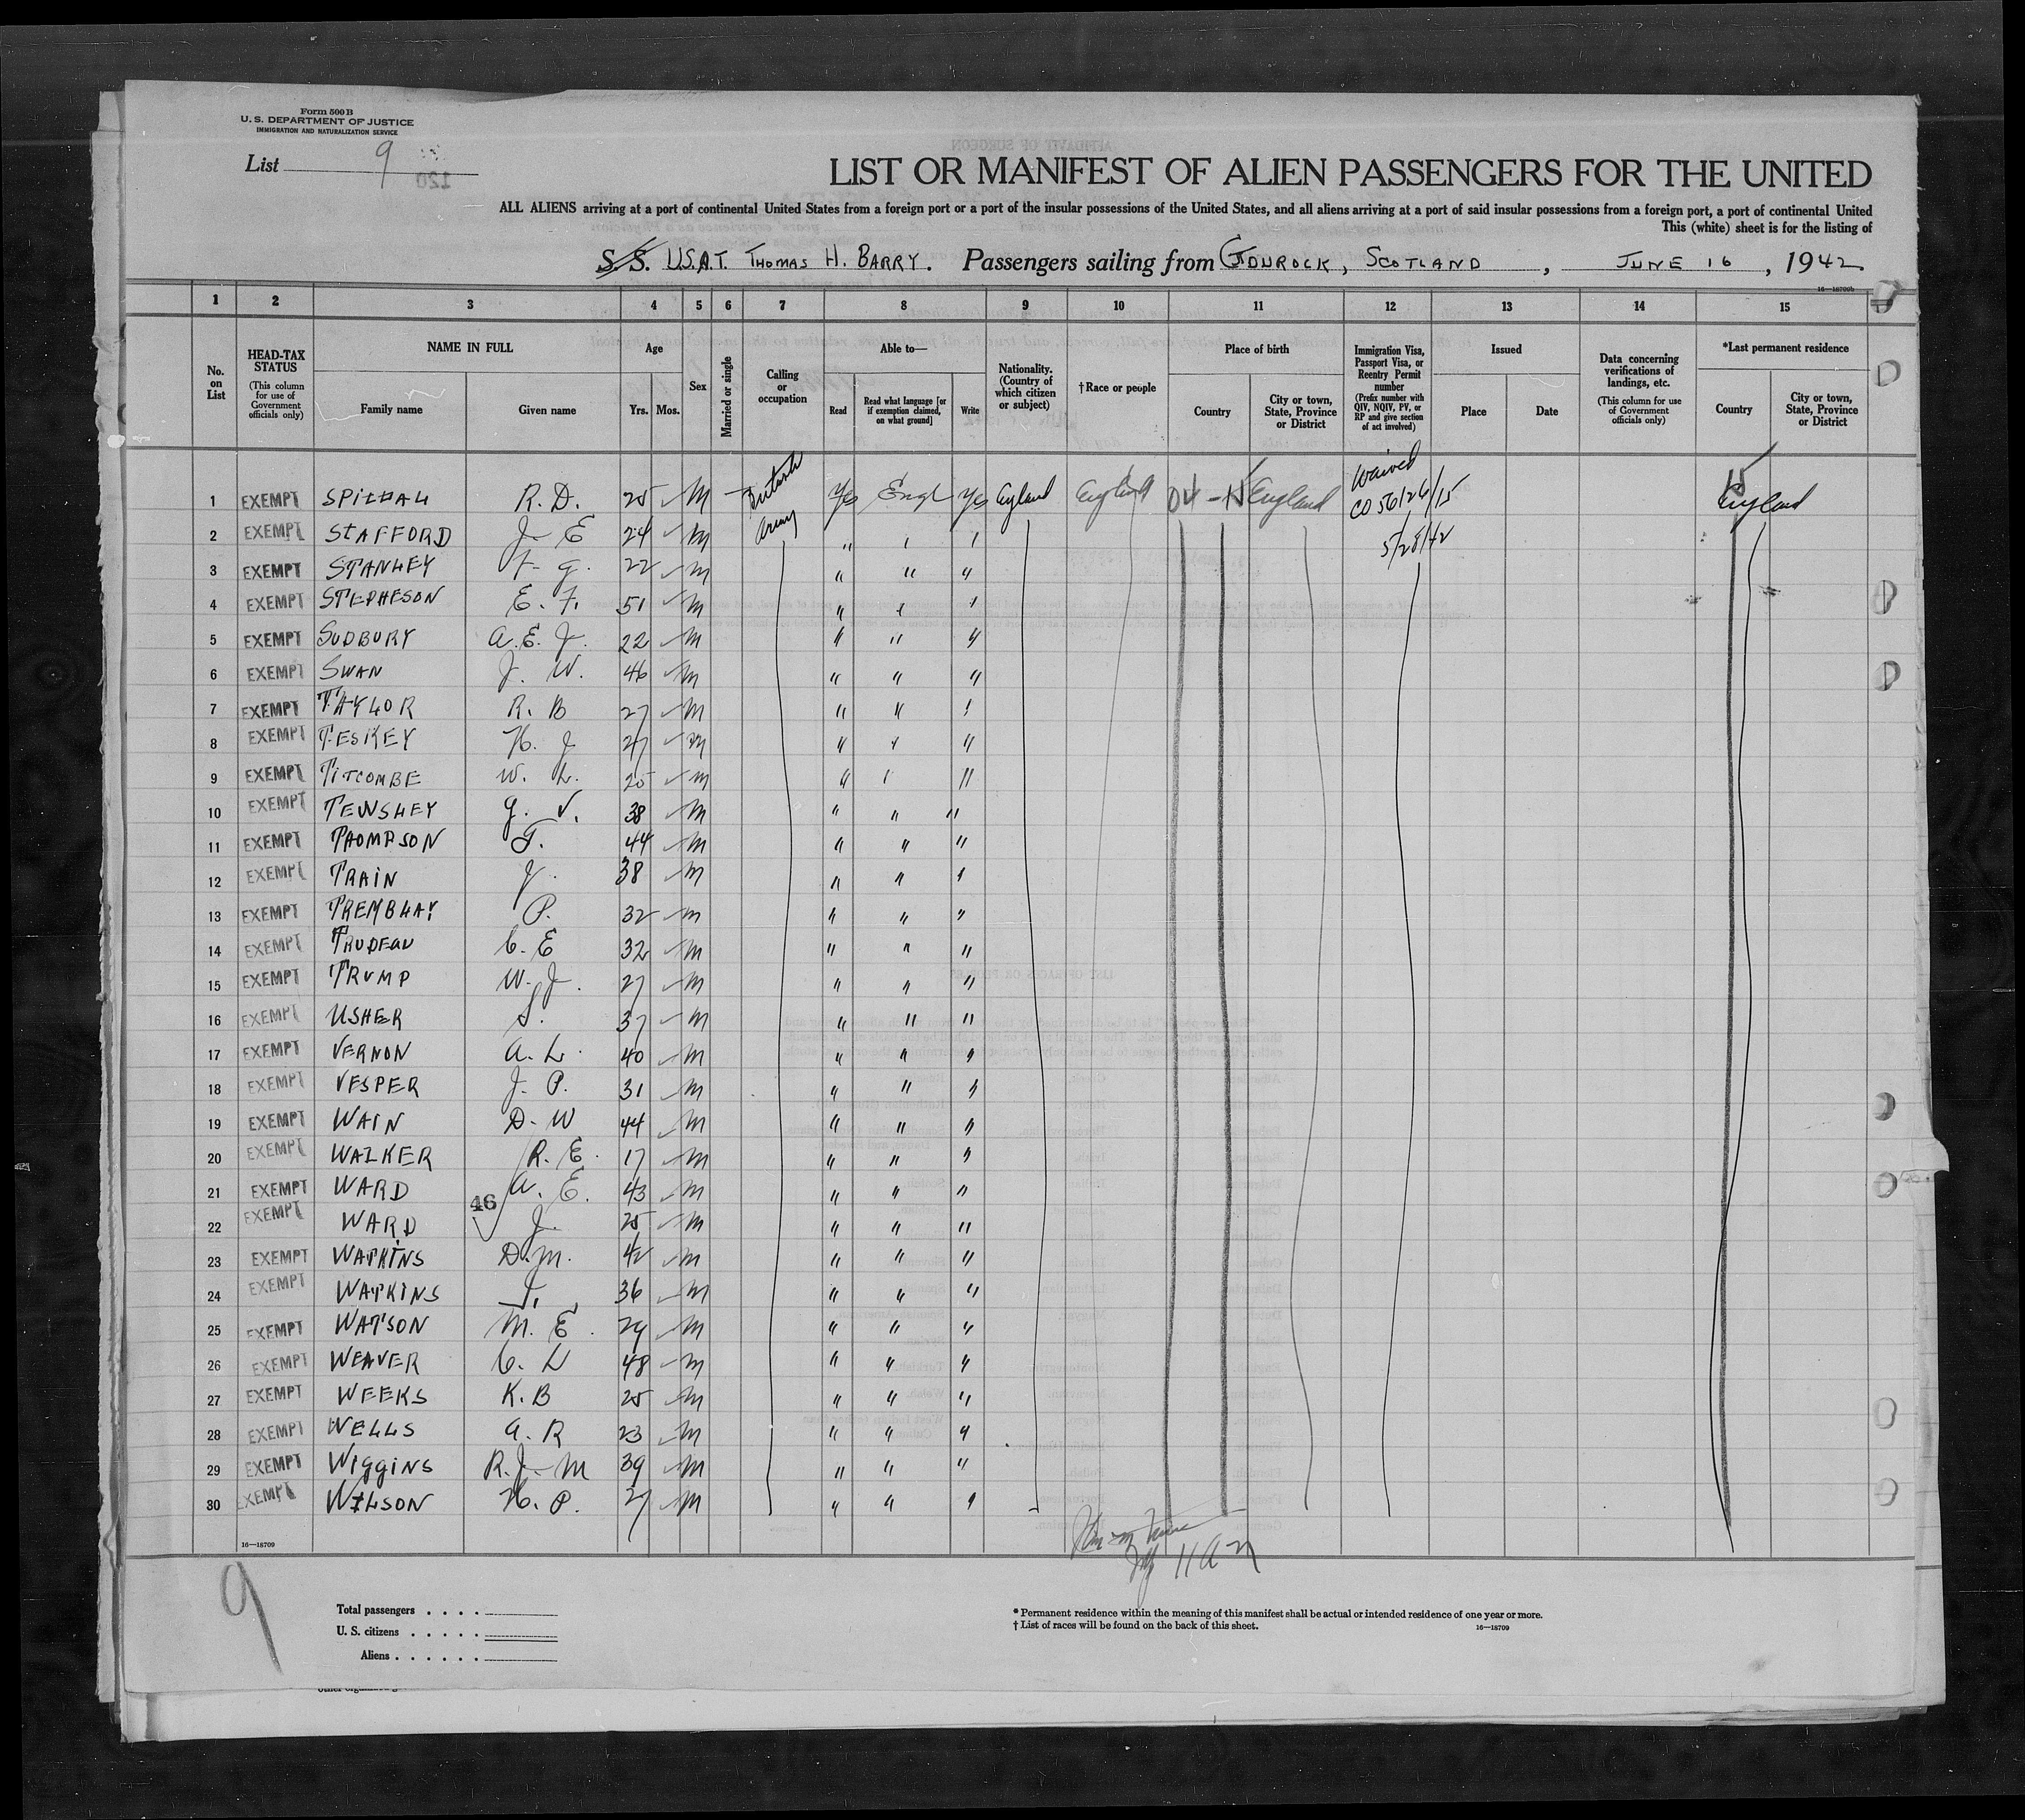 Form 500 B
U. S. DEPARTMENT OF JUSTICE
IMMIGRATION AND NATURALIZATION SERVICE
List 9
120
LIST OR MANIFEST OF ALIEN PASSENGERS FOR THE UNITED
ALL ALIENS arriving at a port of continental United States from a foreign port or a port of the insular possessions of the United States, and all aliens arriving at a port of said insular possessions from a foreign port, a port of continental United
This (white) sheet is for the listing of
S. S. U.S.A.T. THOMAS H. BARRY. Passengers sailing from GOUROCK, SCOTLAND, JUNE 16, 1942
16—18709b
1 2 3 4 5 6 7 8 9 10 11 12 13 14 15
No. on List
HEAD-TAX STATUS (This column for use of Government officials only)
NAME IN FULL
Family name Given name
Age
Yrs. Mos.
Sex
Married or single
Calling or occupation
Able to—
Read Read what language [or if exemption claimed, on what ground] Write
Nationality. (Country of which citizen or subject)
†Race or people
Place of birth
Country City or town, State, Province or District
Immigration Visa, Passport Visa, or Reentry Permit number (Prefix number with QIV, NQIV, PV, or RP and give section of act involved)
Issued
Place Date
Data concerning verifications of landings, etc. (This column for use of Government officials only)
*Last permanent residence
Country City or town, State, Province or District
1 EXEMPT SPILHAU R. D. 25 M British Army Yes Engl Yes England English 04 - 15 England Waived CO 56126/15 5/28/42 15 England
2 EXEMPT STAFFORD J. E 24 M " " "
3 EXEMPT STANLEY F. G. 22 M " " "
4 EXEMPT STEPHESON E. F. 51 M " " "
5 EXEMPT SUDBURY A. E. J. 22 M " " "
6 EXEMPT SWAN J. W. 46 M " " "
7 EXEMPT TAYLOR R. B 27 M " " "
8 EXEMPT TESKEY H. J 27 M " " "
9 EXEMPT TITCOMBE W. L. 25 M " " "
10 EXEMPT TEWSLEY G. V. 38 M " " "
11 EXEMPT THOMPSON T. 44 M " " "
12 EXEMPT TRAIN J. 38 M " " "
13 EXEMPT TREMBLAY P. 32 M " " "
14 EXEMPT TRUDEAU C. E 32 M " " "
15 EXEMPT TRUMP W. J. 27 M " " "
16 EXEMPT USHER S. 37 M " " "
17 EXEMPT VERNON A. L. 40 M " " "
18 EXEMPT VESPER J. P. 31 M " " "
19 EXEMPT WAIN D. W 44 M " " "
20 EXEMPT WALKER R. E. 17 M " " "
21 EXEMPT WARD A. E. 43 M " " "
46
22 EXEMPT WARD J. 25 M " " "
23 EXEMPT WATKINS D. M. 42 M " " "
24 EXEMPT WATKINS T. 36 M " " "
25 EXEMPT WATSON M. E. 29 M " " "
26 EXEMPT WEAVER C. L 48 M " " "
27 EXEMPT WEEKS K. B 25 M " " "
28 EXEMPT WELLS A. R 23 M " " "
29 EXEMPT WIGGINS R. J. M 39 M " " "
30 EXEMPT WILSON H. P. 27 M " " "
16—18709
9
Total passengers . . . .
U. S. citizens . . . . .
Aliens . . . . . .
* Permanent residence within the meaning of this manifest shall be actual or intended residence of one year or more.
† List of races will be found on the back of this sheet.
16—18709